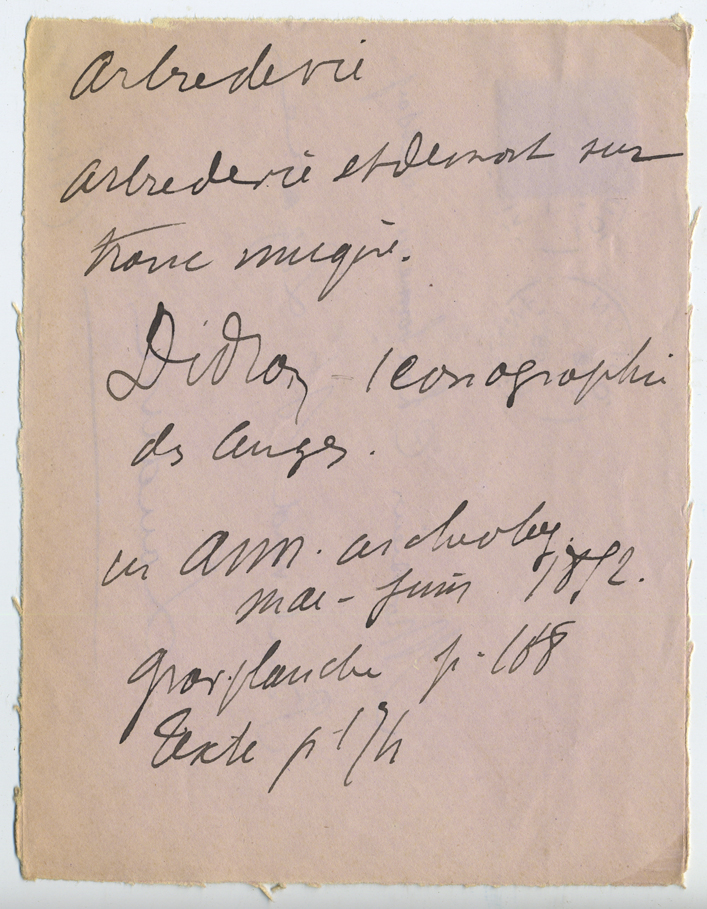 Arbre de vie
Arbre de vie et de mort sur
tronc unique.
Didron – Iconographie
des Anges.
in Ann. archeolog.
mai – juin 1852.
Grav. planche p. 168
Texte p. 174